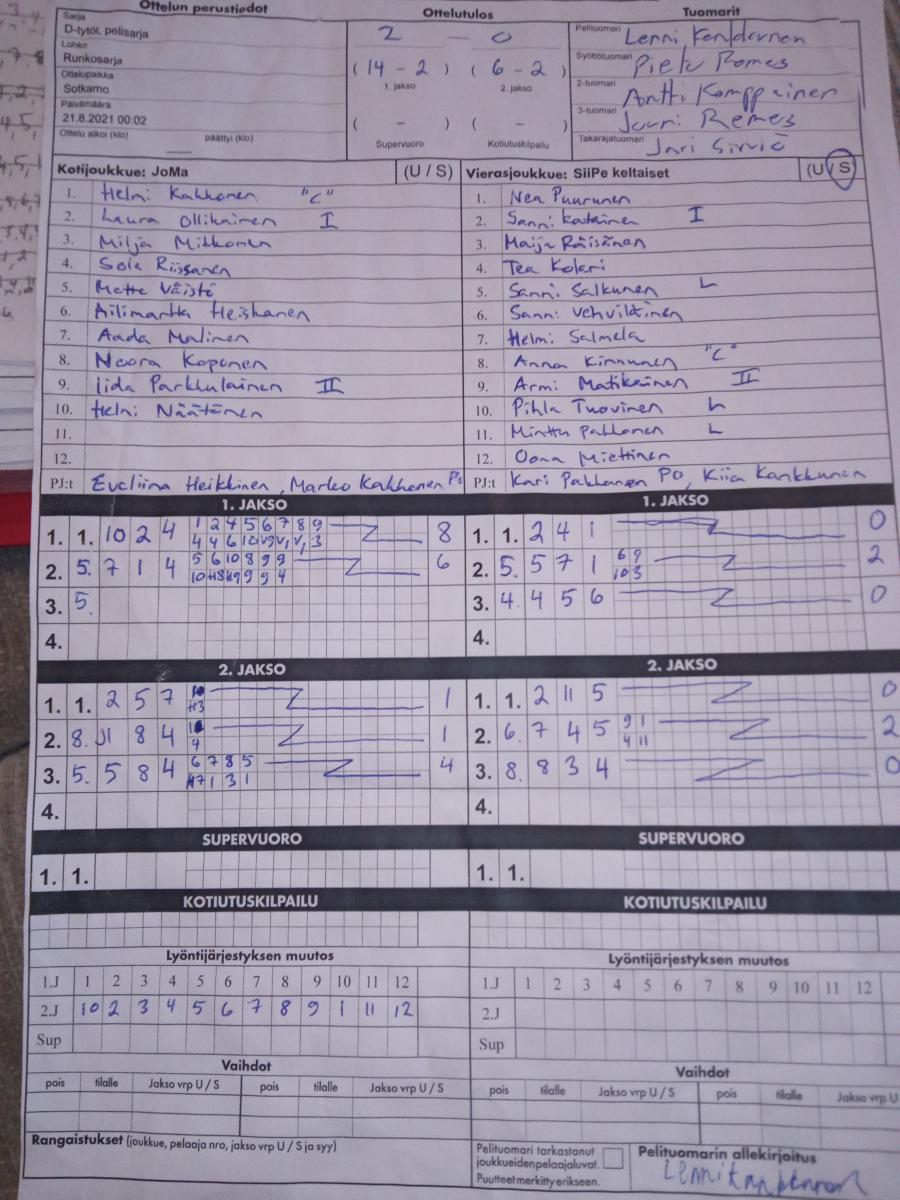 Ottelun perustiedot
Sarja
D-tytöt, pelisarja
Lohko
Runkosarja
Ottelupaikka
Sotkamo
Päivämäärä
21.8.2021 00:02
Ottelu alkoi (klo) päättyi (klo)
Ottelutulos
2 — 0
( 14 - 2 ) ( 6 - 2 )
1. jakso 2. jakso
( - ) ( - )
Supervuoro Kotiutuskilpailu
Tuomarit
Pelituomari Lenni
Syöttötuomari Pietu Romes
2-tuomari Antti Komppainen
3-tuomari Jouni Remes
Takarajatuomari Jari Sirviö
Kotijoukkue: JoMa (U / S)
1. Helmi Kakkonen "C"
2. Laura Ollikainen I
3. Milja Mikkonen
4. Sola Riissanen
5. Mette Väistö
6. Ailimartta Heiskanen
7. Aada Malinen
8. Neora Koponen
9. Iida Parkkulainen II
10. Helmi Näätänen
11.
12.
PJ:t Eveliina Heikkinen, Marko Kakkonen
Vierasjoukkue: SiiPe keltaiset (U / S)
1. Nea Puurunen
2. Sanni I
3. Maija Räisänen
4. Tea Kolari
5. Sanni Salkunen L
6. Sanni Vehviläinen
7. Helmi Salmela
8. Anna Kinnunen "C"
9. Armi Matikainen II
10. Pihla Tuovinen L
11. Minttu Pakkanen L
12. Oona Miettinen
PJ:t Kari Pakkanen PO, Kiia Kankkunen
1. JAKSO
1. 1. 10 2 4
1 2 4 5 6 7 8 9
8
2. 5. 7 1 4
5 6 10 8 9 9
6
3. 5.
4.
1. JAKSO
1. 1. 2 4 1 0
2. 5. 5 7 1
6 9
10 3
2
3. 4. 4 5 6 0
4.
2. JAKSO
1. 1. 2 5 7 1
2. 8. 11 8 4
4
1
3. 5. 5 8 4
6 7 8 5
4
4.
2. JAKSO
1. 1. 2 11 5 0
2. 6. 7 4 5
9 1
4 11
2
3. 8. 8 3 4 0
4.
SUPERVUORO
1. 1.
SUPERVUORO
1. 1.
KOTIUTUSKILPAILU
KOTIUTUSKILPAILU
Lyöntijärjestyksen muutos
1.J 1 2 3 4 5 6 7 8 9 10 11 12
2.J 10 2 3 4 5 6 7 8 9 1 11 12
Sup
Lyöntijärjestyksen muutos
1.J 1 2 3 4 5 6 7 8 9 10 11 12
2.J
Sup
Vaihdot
pois tilalle Jakso vrp U / S pois tilalle Jakso vrp U / S
Vaihdot
pois tilalle Jakso vrp U / S pois tilalle Jakso vrp U
Rangaistukset (joukkue, pelaaja nro, jakso vrp U / S ja syy)
Pelituomari tarkastanut
joukkueidenpelaajaluvat.
Puutteet merkitty erikseen.
Pelituomarin allekirjoitus